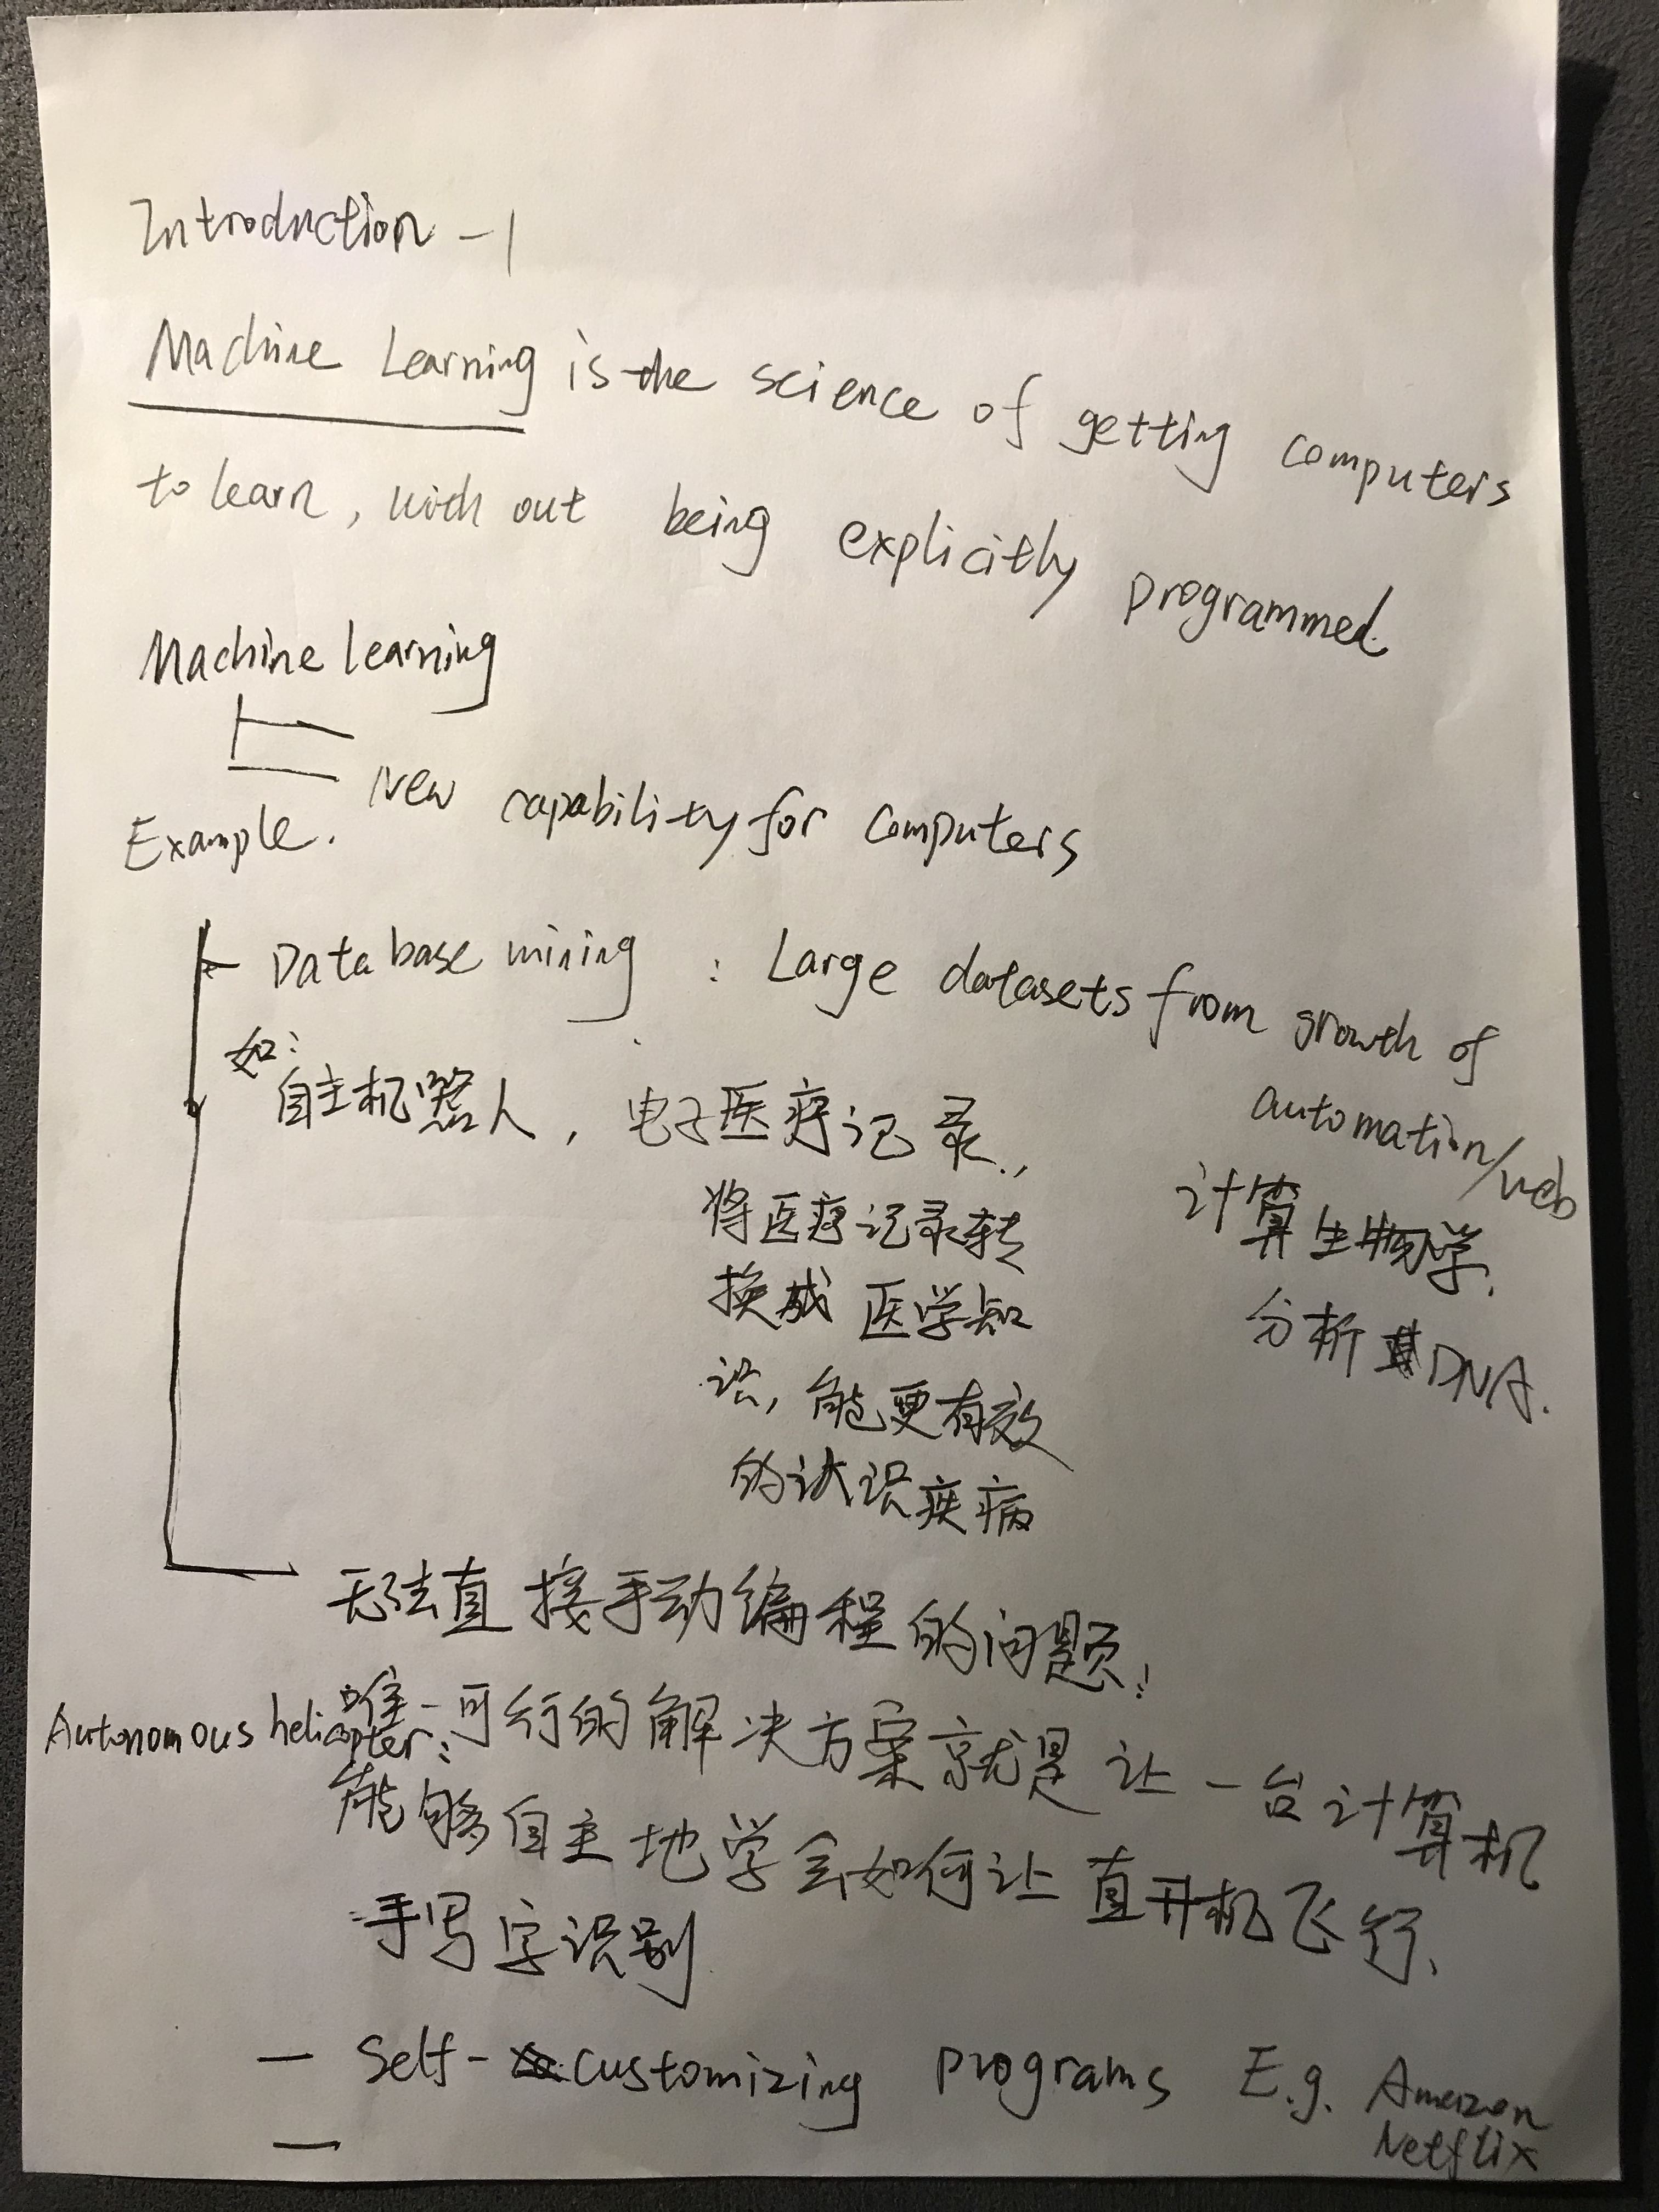 Introduction -1
Machine Learning is the science of getting computers
to learn, with out being explicitly programmed.
Machine learning
New capability for computers
Example.
Database mining : Large datasets from growth of
automation/web
如:
自主机器人, 电子医疗记录.,
将医疗记录转
换成 医学知
识, 能更有效
的认识疾病
计算生物学.
分析DNA.
无法直接手动编程的问题:
Autonomous helicopter:
唯一可行的解决方案就是让一台计算机
能够自主地学会如何让直升机飞行.
手写字识别
Self-customizing programs E.g. Amazon
Netflix